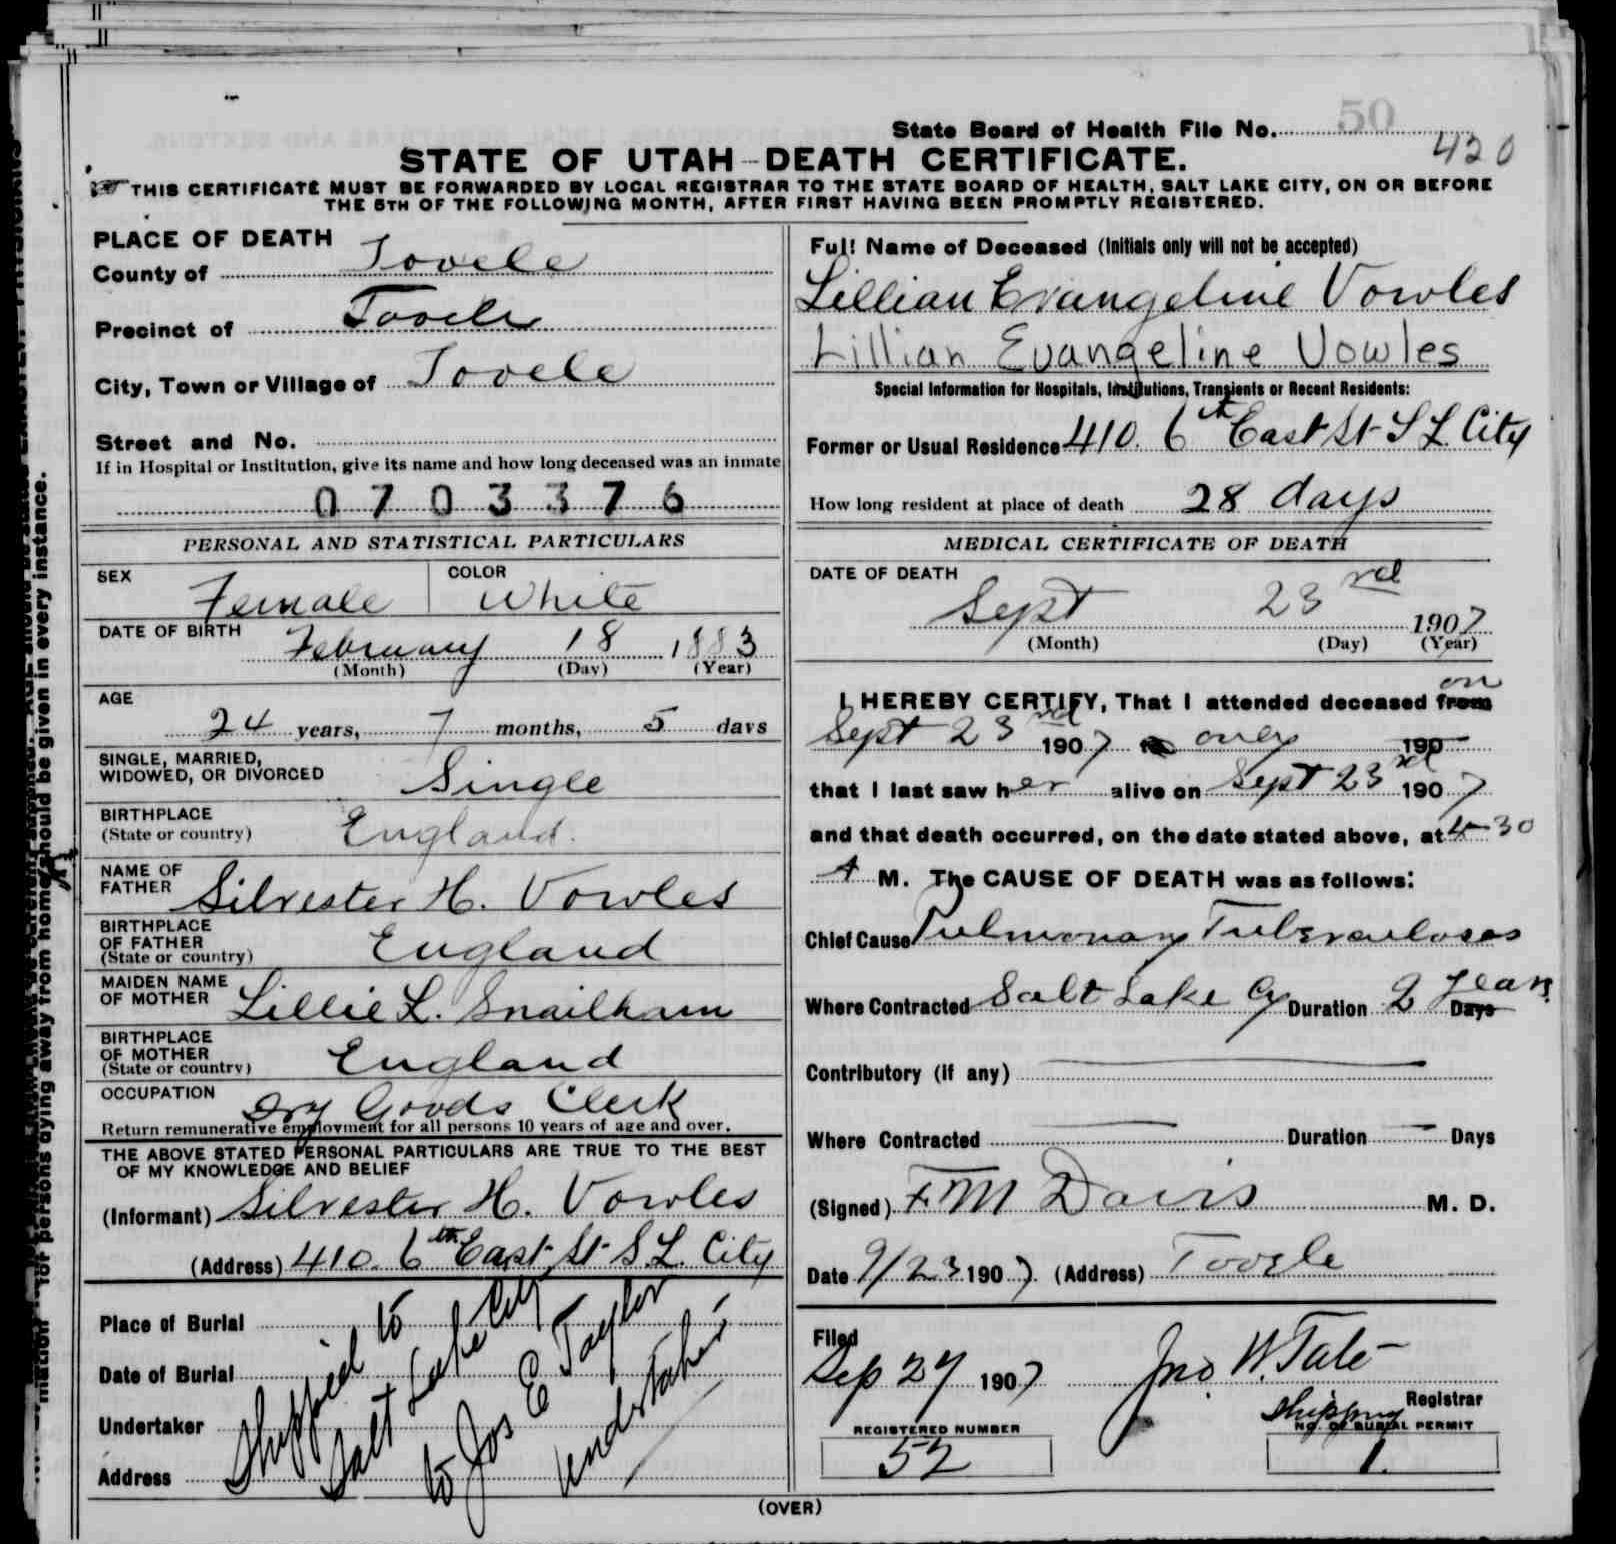 State Board of Health File No. 50
420
STATE OF UTAH—DEATH CERTIFICATE.
THIS CERTIFICATE MUST BE FORWARDED BY LOCAL REGISTRAR TO THE STATE BOARD OF HEALTH, SALT LAKE CITY, ON OR BEFORE
THE 5TH OF THE FOLLOWING MONTH, AFTER FIRST HAVING BEEN PROMPTLY REGISTERED.
PLACE OF DEATH
County of Tooele
Precinct of Tooele
City, Town or Village of Tooele
Street and No.
If in Hospital or Institution, give its name and how long deceased was an inmate
0703376
PERSONAL AND STATISTICAL PARTICULARS
SEX Female COLOR White
DATE OF BIRTH February 18 1883
(Month) (Day) (Year)
AGE
24 years, 7 months, 5 days
SINGLE, MARRIED,
WIDOWED, OR DIVORCED Single
BIRTHPLACE
(State or country) England.
NAME OF
FATHER Silvester H. Vowles
BIRTHPLACE
OF FATHER
(State or country) England
MAIDEN NAME
OF MOTHER Lillie L. Snailham
BIRTHPLACE
OF MOTHER
(State or country) England
OCCUPATION Dry Goods Clerk
Return remunerative employment for all persons 10 years of age and over.
THE ABOVE STATED PERSONAL PARTICULARS ARE TRUE TO THE BEST
OF MY KNOWLEDGE AND BELIEF
(Informant) Silvester H. Vowles
(Address) 410. 6th East St S.L. City
Place of Burial
Date of Burial
Undertaker
Address
Shipped to
Salt Lake City
to Jos E Taylor
Undertaker
Full Name of Deceased (Initials only will not be accepted)
Lillian Evangeline Vowles
Lillian Evangeline Vowles
Special Information for Hospitals, Institutions, Transients or Recent Residents:
Former or Usual Residence 410. 6th East St S L City
How long resident at place of death 28 days
MEDICAL CERTIFICATE OF DEATH
DATE OF DEATH
Sept 23rd 1907
(Month) (Day) (Year)
I HEREBY CERTIFY, That I attended deceased from on
Sept 23rd 1907 to only 190
that I last saw her alive on Sept 23rd 1907
and that death occurred, on the date stated above, at 4-30
A M. The CAUSE OF DEATH was as follows:
Chief Cause Pulmonary Tuberculosos
Where Contracted Salt Lake Cy Duration 2 Days years
Contributory (if any)
Where Contracted Duration Days
(Signed) F M Davis M. D.
Date 9/23 1907. (Address) Tooele
Filed
Sep 27 1907 Jno. W. Tate
Registrar
REGISTERED NUMBER
52
Shipping
NO. OF BURIAL PERMIT
1.
(OVER)
for persons dying away from home should be given in every instance.